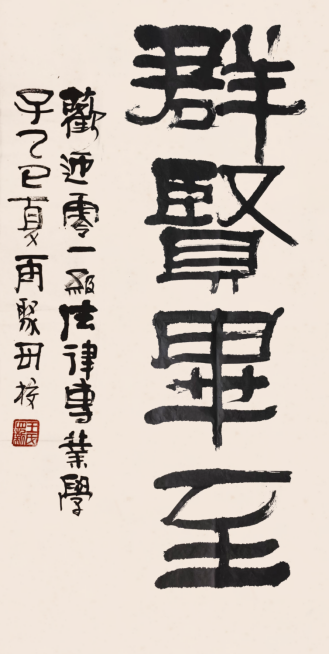 群賢畢至
歡迎零一級法律專業學
子乙巳夏再聚母校